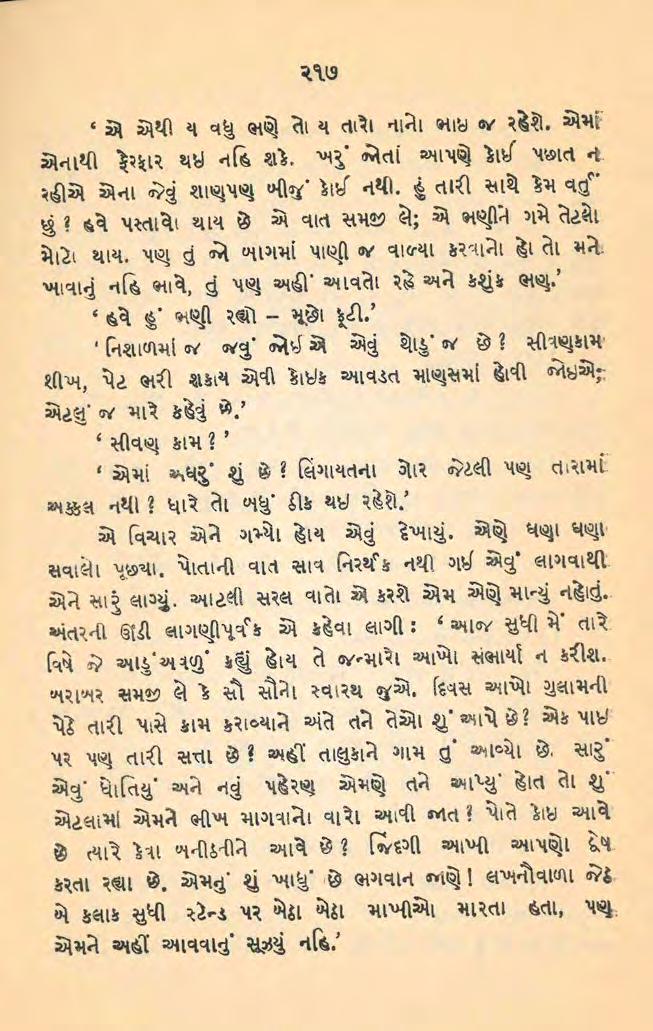 ૨૧૭
‘ એ એથી ય વધુ ભણે તો ય તારો નાનો ભાઇ જ રહેશે. એમાં
એનાથી ફેરફાર થઇ નહિ શકે. ખરું જોતાં આપણે કોઈ પછાત ન
રહીએ એના જેવું શાણપણ બીજું કોઈ નથી. હું તારી સાથે કેમ વર્તું
છું ? હવે પસ્તાવો થાય છે એ વાત સમજી લે; એ ભણીને ગમે તેટલો
મોટો થાય. પણ તું જો બાગમાં પાણી જ વાળ્યા કરવાનો હો તો મને
ખાવાનું નહિ ભાવે, તું પણ અહીં આવતો રહે અને કશુંક ભણ.’
‘ હવે હું ભણી રહ્યો – મૂછો ફૂટી.’
‘ નિશાળમાં જ જવું જોઈએ એવું થોડું જ છે ? સીવણકામ
શીખ, પેટ ભરી શકાય એવી કોઇક આવડત માણસમાં હોવી જોઇએ;
એટલું જ મારે કહેવું છે.’
‘ સીવણ કામ ? ’
‘ એમાં અઘરું શું છે ? લિંગાયતના ગોર જેટલી પણ તારામાં
અક્કલ નથી ? ધારે તો બધું ઠીક થઇ રહેશે.’
એ વિચાર એને ગમ્યો હોય એવું દેખાયું. એણે ઘણા ઘણા
સવાલો પૂછ્યા. પોતાની વાત સાવ નિરર્થક નથી ગઈ એવું લાગવાથી
એને સારું લાગ્યું. આટલી સરલ વાતો એ કરશે એમ એણે માન્યું નહોતું.
અંતરની ઊંડી લાગણીપૂર્વક એ કહેવા લાગી : ‘ આજ સુધી મેં તારે
વિષે જે આડુંઅવળું કહ્યું હોય તે જન્મારો આખો સંભાર્યા ન કરીશ.
બરાબર સમજી લે કે સૌ સૌનો સ્વારથ જુએ. દિવસ આખો ગુલામની
પેઠે તારી પાસે કામ કરાવ્યાને અંતે તને તેઓ શું આપે છે ? એક પાઇ
પર પણ તારી સત્તા છે ? અહીં તાલુકાને ગામ તું આવ્યો છે. સારું
એવું ધોતિયું અને નવું પહેરણ એમણે તને આપ્યું હોત તો શું
એટલામાં એમને ભીખ માગવાનો વારો આવી જાત ? પોતે કોઇ આવે
છે ત્યારે કેવા બનીઠનીને આવે છે ? જિંદગી આખી આપણો દ્વેષ
કરતા રહ્યા છે. એમનું શું ખાધું છે ભગવાન જાણે ! લખનૌવાળા જેઠ
બે કલાક સુધી સ્ટેન્ડ પર બેઠા બેઠા માખીઓ મારતા હતા, પણ
એમને અહીં આવવાનું સૂઝયું નહિ.’